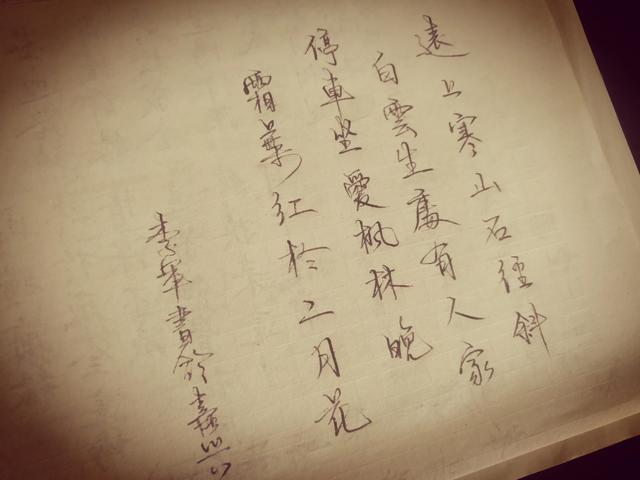 遠上寒山石徑斜
白雲生處有人家
停車坐愛楓林晚
霜葉紅於二月花
李軍書於嘉興